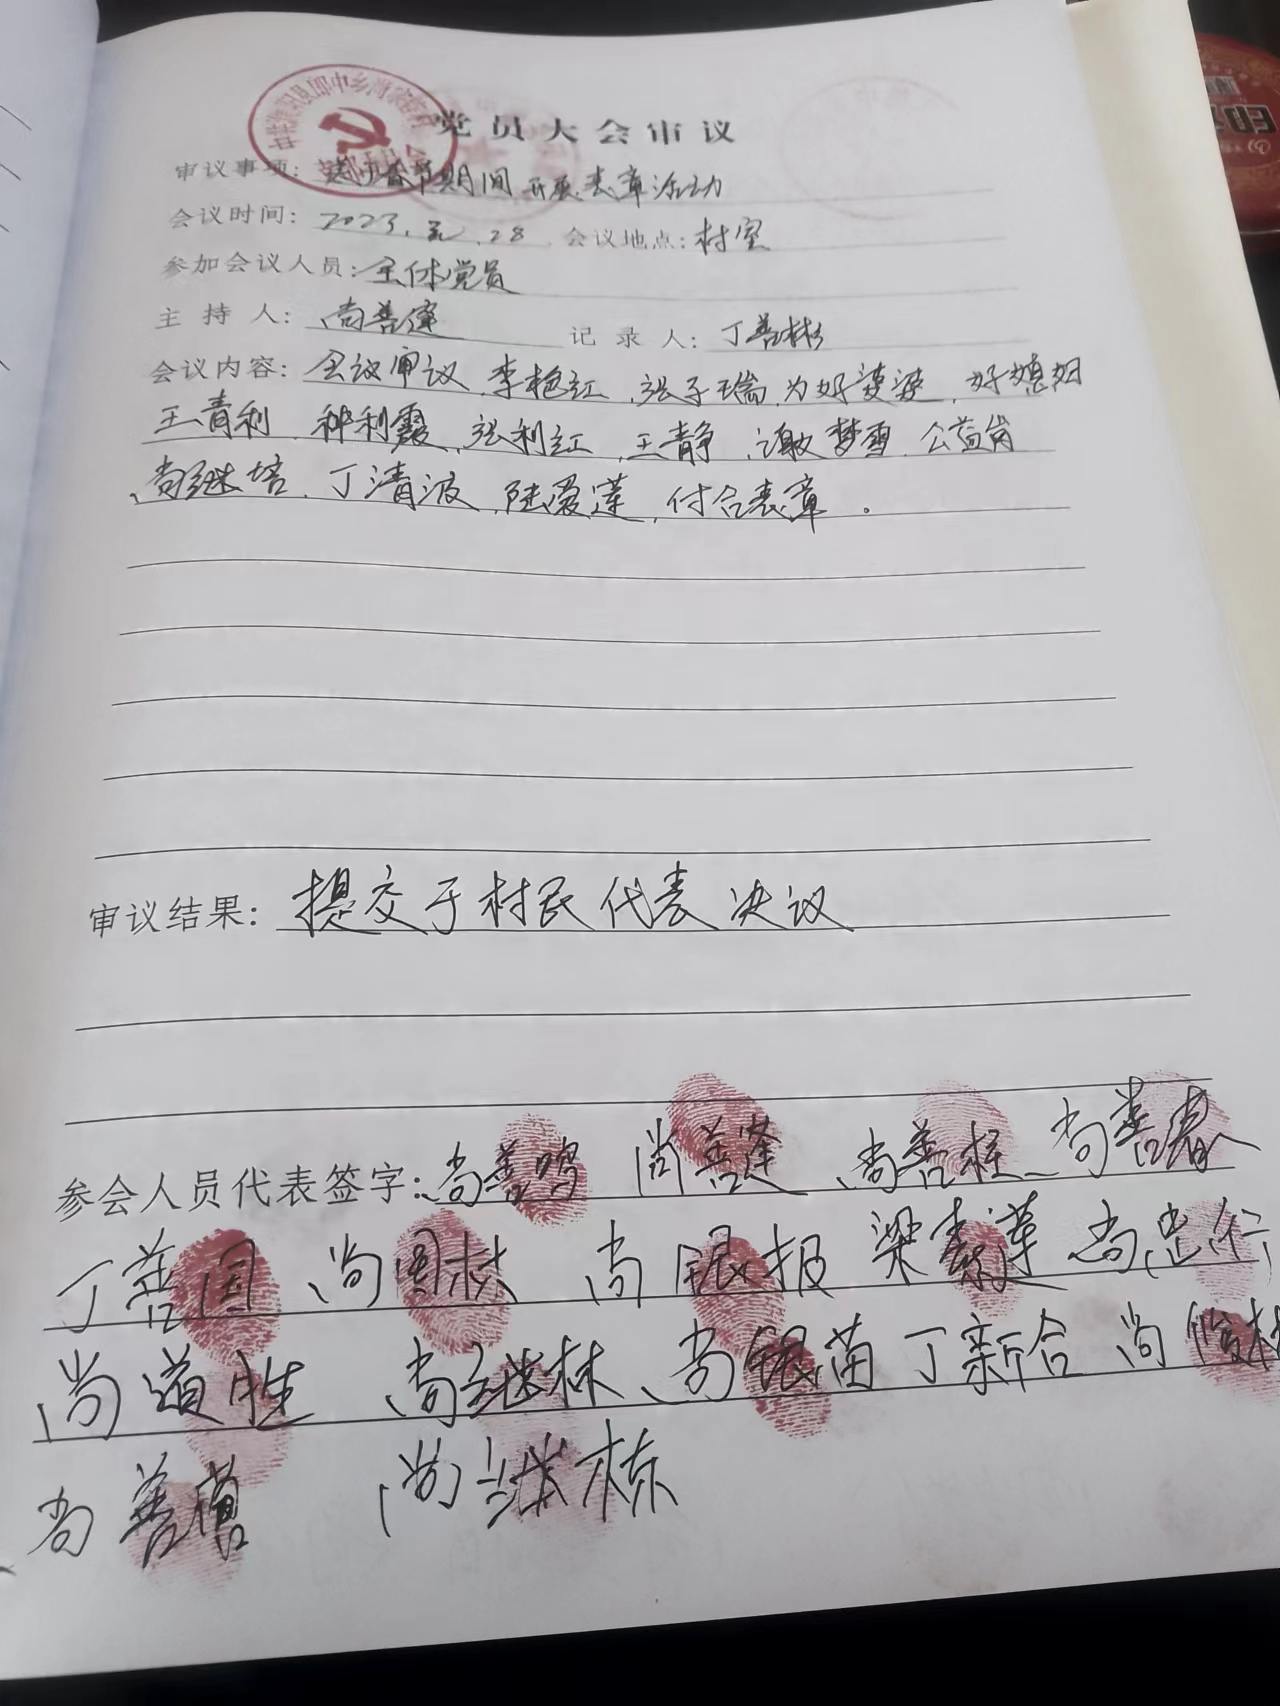 党员大会审议
审议事项: 春节期间开展表章活动
会议时间: 2023. 元. 28 会议地点: 村室
参加会议人员: 全体党员
主 持 人: 尚善蓬 记 录 人: 丁善彬
会议内容: 会议审议, 李艳红, 张子瑞, 为好婆婆, 好媳妇
王青利, 种利霞, 张利红, 王静, 谢梦雪, 公益岗
尚继培, 丁清波, 陆爱莲, 付合表章.
审议结果: 提交于村民代表决议
参会人员代表签字: 尚善鸣 尚善蓬 尚善柱 尚善春
丁善国 尚国林 尚银报 梁素莲 尚忠行
尚道胜 尚继林 尚银苗 丁新合 尚
尚善 尚继栋